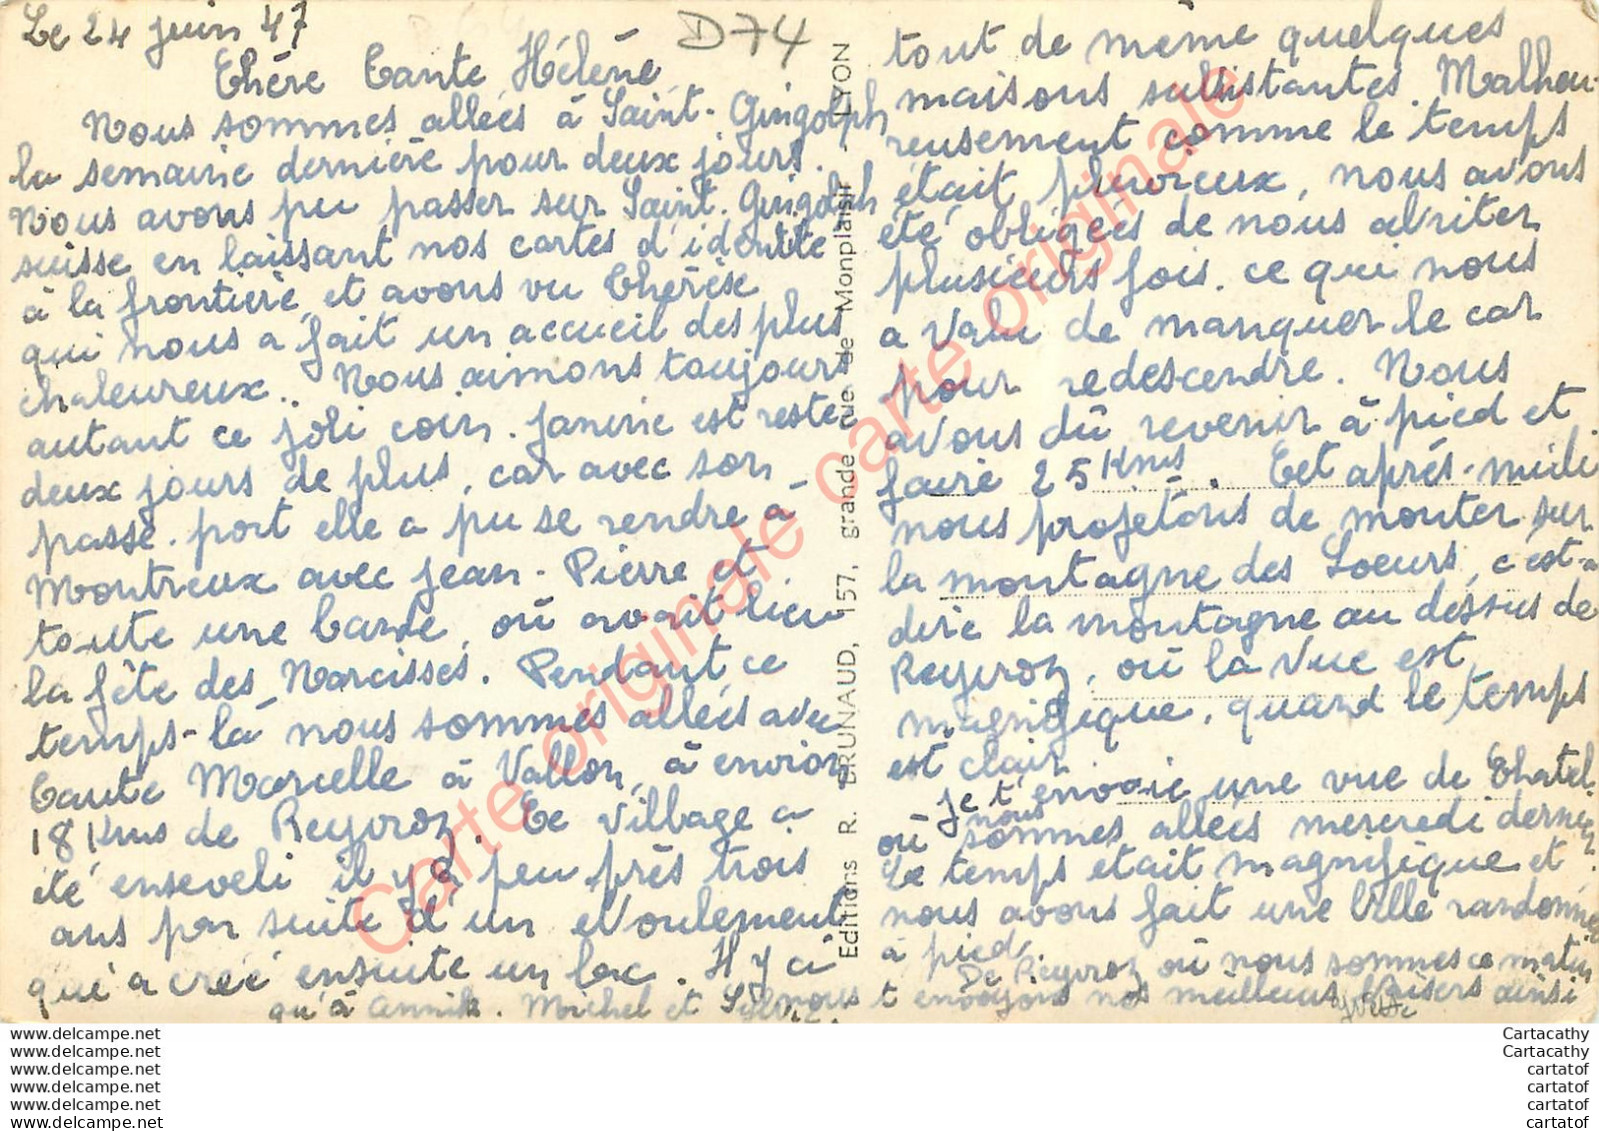 Le 24 juin 47
D74
Chère Tante Hélène,
Nous sommes allées à Saint-Gingolph
la semaine dernière pour deux jours.
Nous avons pu passer sur Saint-Gingolph
suisse en laissant nos cartes d'identité
à la frontière, et avons vu Thérèse
qui nous a fait un accueil des plus
chaleureux.. Nous aimons toujours
autant ce joli coin. Janine est restée
deux jours de plus, car avec son
passe-port elle a pu se rendre à
Montreux avec Jean-Pierre et
toute une bande, où avait lieu
la fête des Narcisses. Pendant ce
temps-là nous sommes allées avec
Tante Marcelle à Vallon, à environ
18 Kms de Reyvroz. Ce village a
été enseveli il y a peu près trois
ans par suite d'un eboulement
qui a créé ensuite un lac. Il y a
tout de même quelques
maisons subsistantes. Malheu-
reusement comme le temps
était pluvieux, nous avons
été obligées de nous abriter
plusieurs fois. ce qui nous
a valu de manquer le car
pour redescendre. Nous
avons dû revenir à pied et
faire 25 Kms. Cet après-midi
nous projetons de monter sur
la montagne des Soeurs, c'est-à
dire la montagne au dessus de
Reyvroz, où la vue est
magnifique, quand le temps
est clair
Je t'envoie une vue de Chatel
où nous sommes allées mercredi dernier.
Le temps était magnifique et
nous avons fait une belle randonnée
à pied.
De Reyvroz où nous sommes ce matin
nous t envoyons nos meilleurs baisers ainsi
qu'à Annik. Michel et
Yvette
Editions R. BRUNAUD, 157, grande rue de Monplaisir - LYON
Carte originale carte originale
www.delcampe.net
www.delcampe.net
www.delcampe.net
www.delcampe.net
www.delcampe.net
www.delcampe.net
Cartacathy
Cartacathy
cartatof
cartatof
cartatof
cartatof